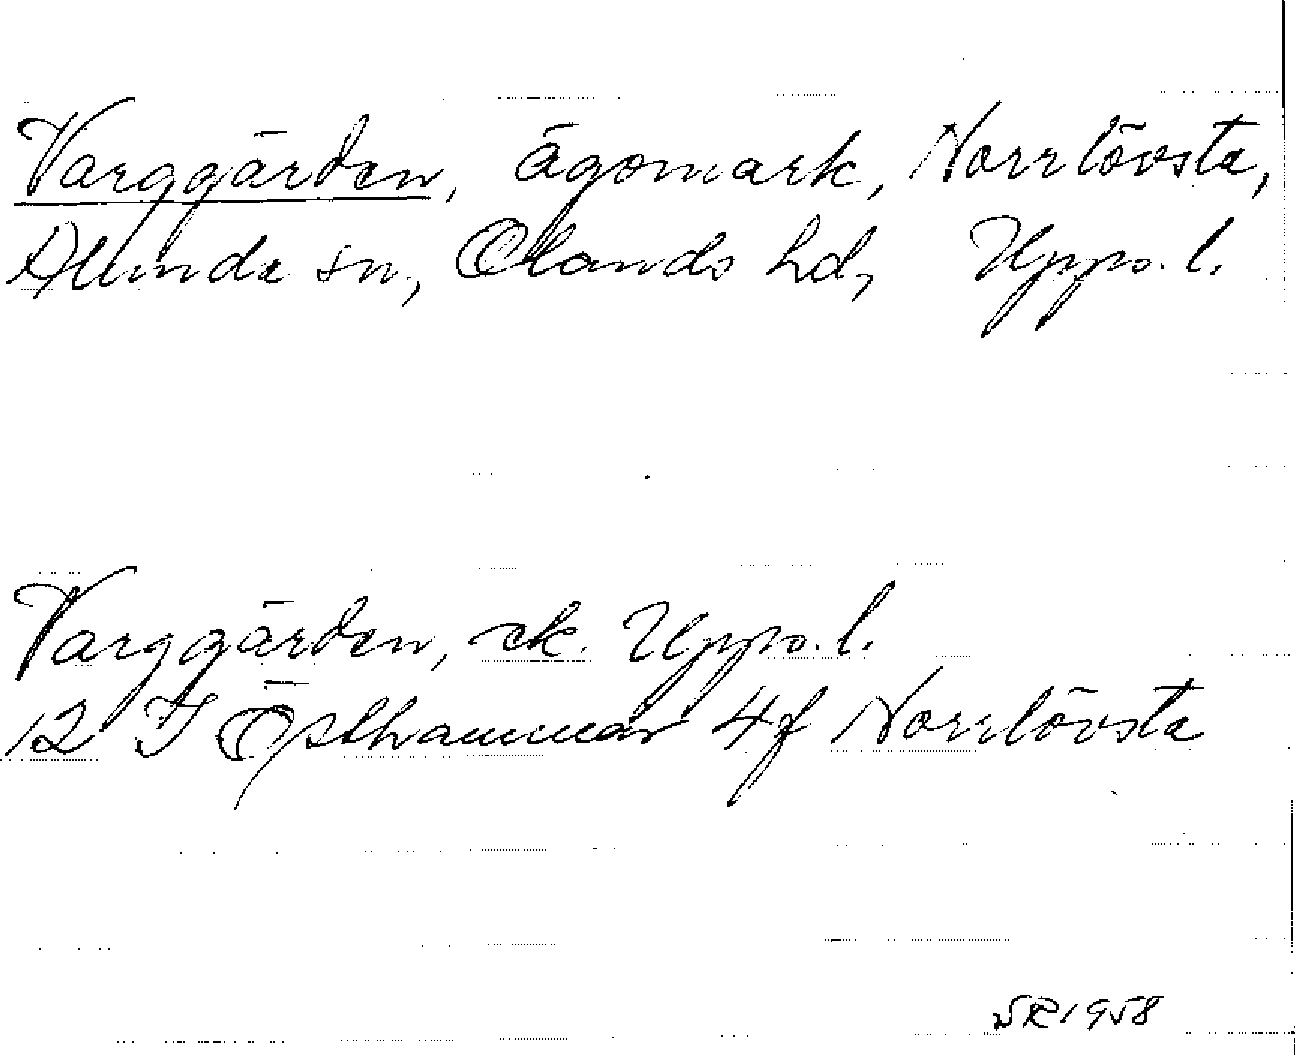 Varggärden, ägomark, Norrlövsta,
Alunda sn, Olands hd, Upps. l.
Varggärden, ek. Upps. l.
12 I Östhammar 4f Norrlövsta
SR 1958